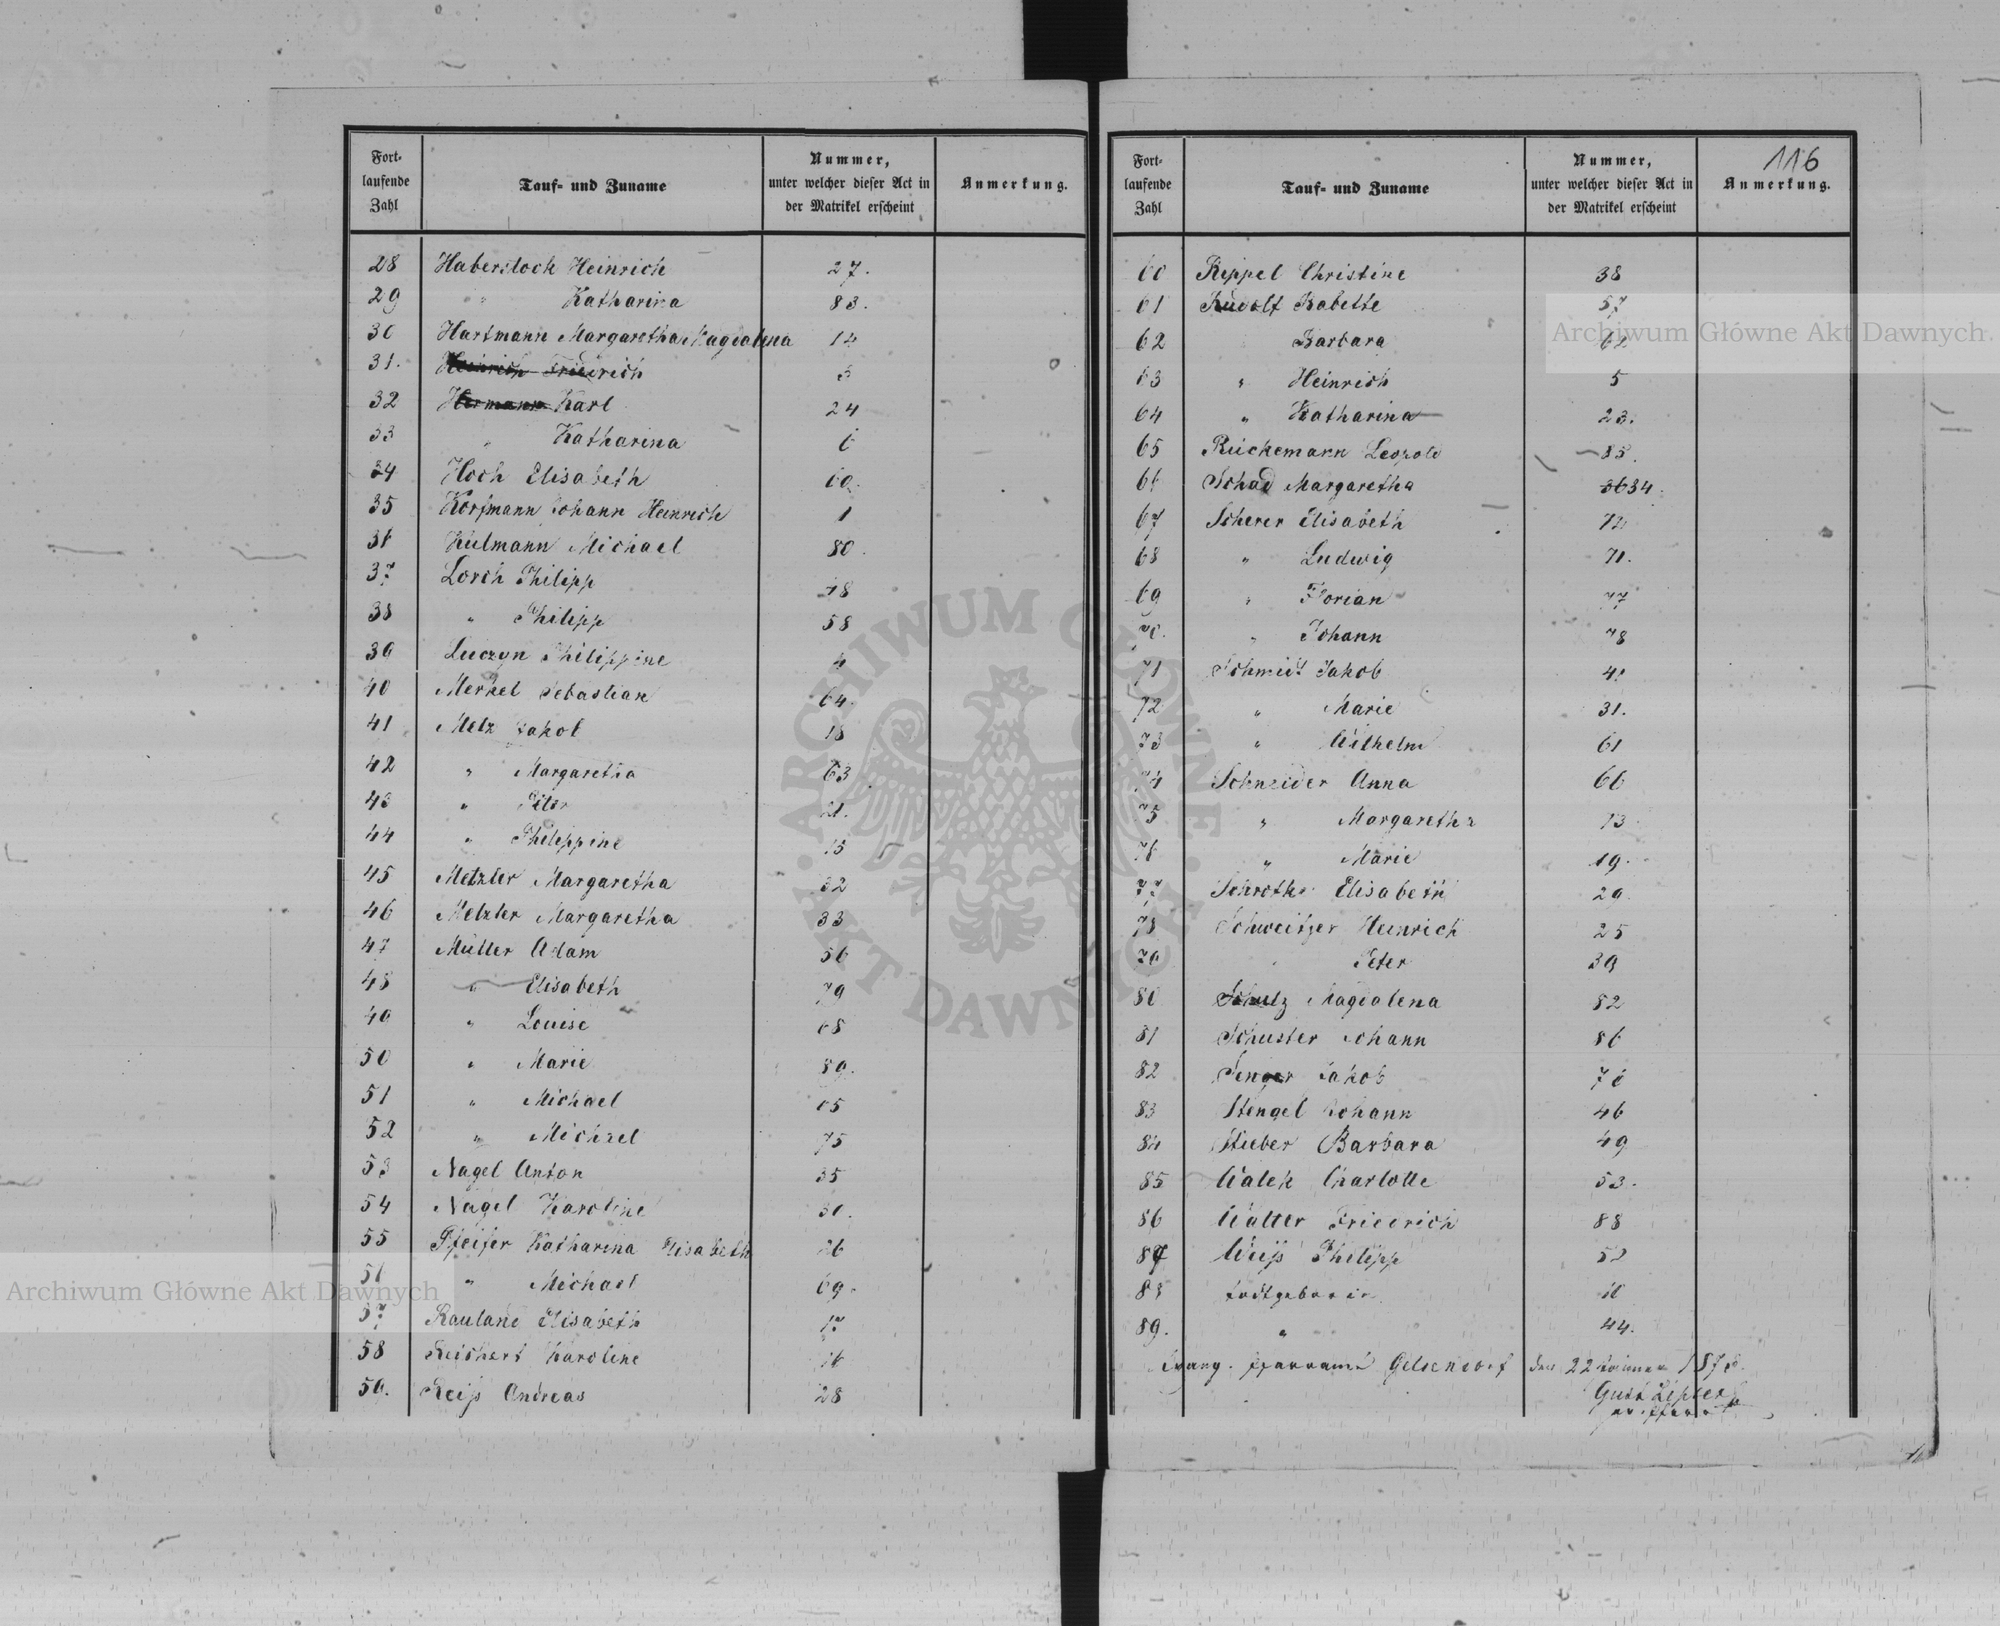 Fort-
laufende
Zahl
Tauf- und Zuname
Nummer,
unter welcher dieser Act in
der Matrikel erscheint
Anmerkung.
28 Haberstock Heinrich 27.
29 " Katharina 83.
30 Hartmann Margaretha Magdalena 14
31. Heinrich Friedrich 3
32 Hermann Karl 24
33 " Katharina 6
34 Hoch Elisabeth 60.
35 Korfmann Johann Heinrich 1
36 Kulmann Michael 80.
37 Lorch Philipp 48
38 " Philipp 58
39 Luczyn Philippine 4
40 Merkel Sebastian 64.
41 Metz Jakob 18
42 " Margaretha 63
43 " Peter 21.
44 " Philippine 15
45 Metzler Margaretha 32
46 Metzler Margaretha 33
47 Müller Adam 56
48 " Elisabeth 79
49 " Louise 68
50 " Marie 89.
51 " Michael 65
52 " Michael 75
53 Nagel Anton 35
54 Nagel Karoline 30.
55 Pfeifer Katharina Elisabeth 26
56 " Michael 69.
57 Rauland Elisabeth 17
58 Reichert Karoline 16
59. Reiß Andreas 28
116
Fort-
laufende
Zahl
Tauf- und Zuname
Nummer,
unter welcher dieser Act in
der Matrikel erscheint
Anmerkung.
60 Rippel Christine 38
61 Rudolf Babette 57
62 Barbara 62
63 " Heinrich 5
64 " Katharina 23.
65 Rückemann Leopold 85.
66 Schad Margaretha 34.
67 Scherer Elisabeth 72
68 " Ludwig 71.
69 " Florian 77
70. " Johann 78
71 Schmidt Jakob 41
72 " Marie 31.
73 " Wilhelm 61
74 Schneider Anna 66
75 " Margaretha 13
76 " Marie 19.
77 Schroth Elisabeth 29.
78 Schweitzer Heinrich 25
79 " Peter 39
80 Schulz Magdalena 82
81 Schuster Johann 86
82 Senger Jakob 70
83 Stengel Johann 46
84 Stieber Barbara 49
85 Walek Charlotte 53.
86 Walter Friedrich 88
87 Weiß Philipp 52
88 todtgeboren 10
89. " 44.
Evang. Pfarramt Gelsendorf den 22 Jänner 187
Gust
Archiwum Główne Akt Dawnych.
Archiwum Główne Akt Dawnych
ARCHIWUM GŁÓWNE AKT DAWNYCH